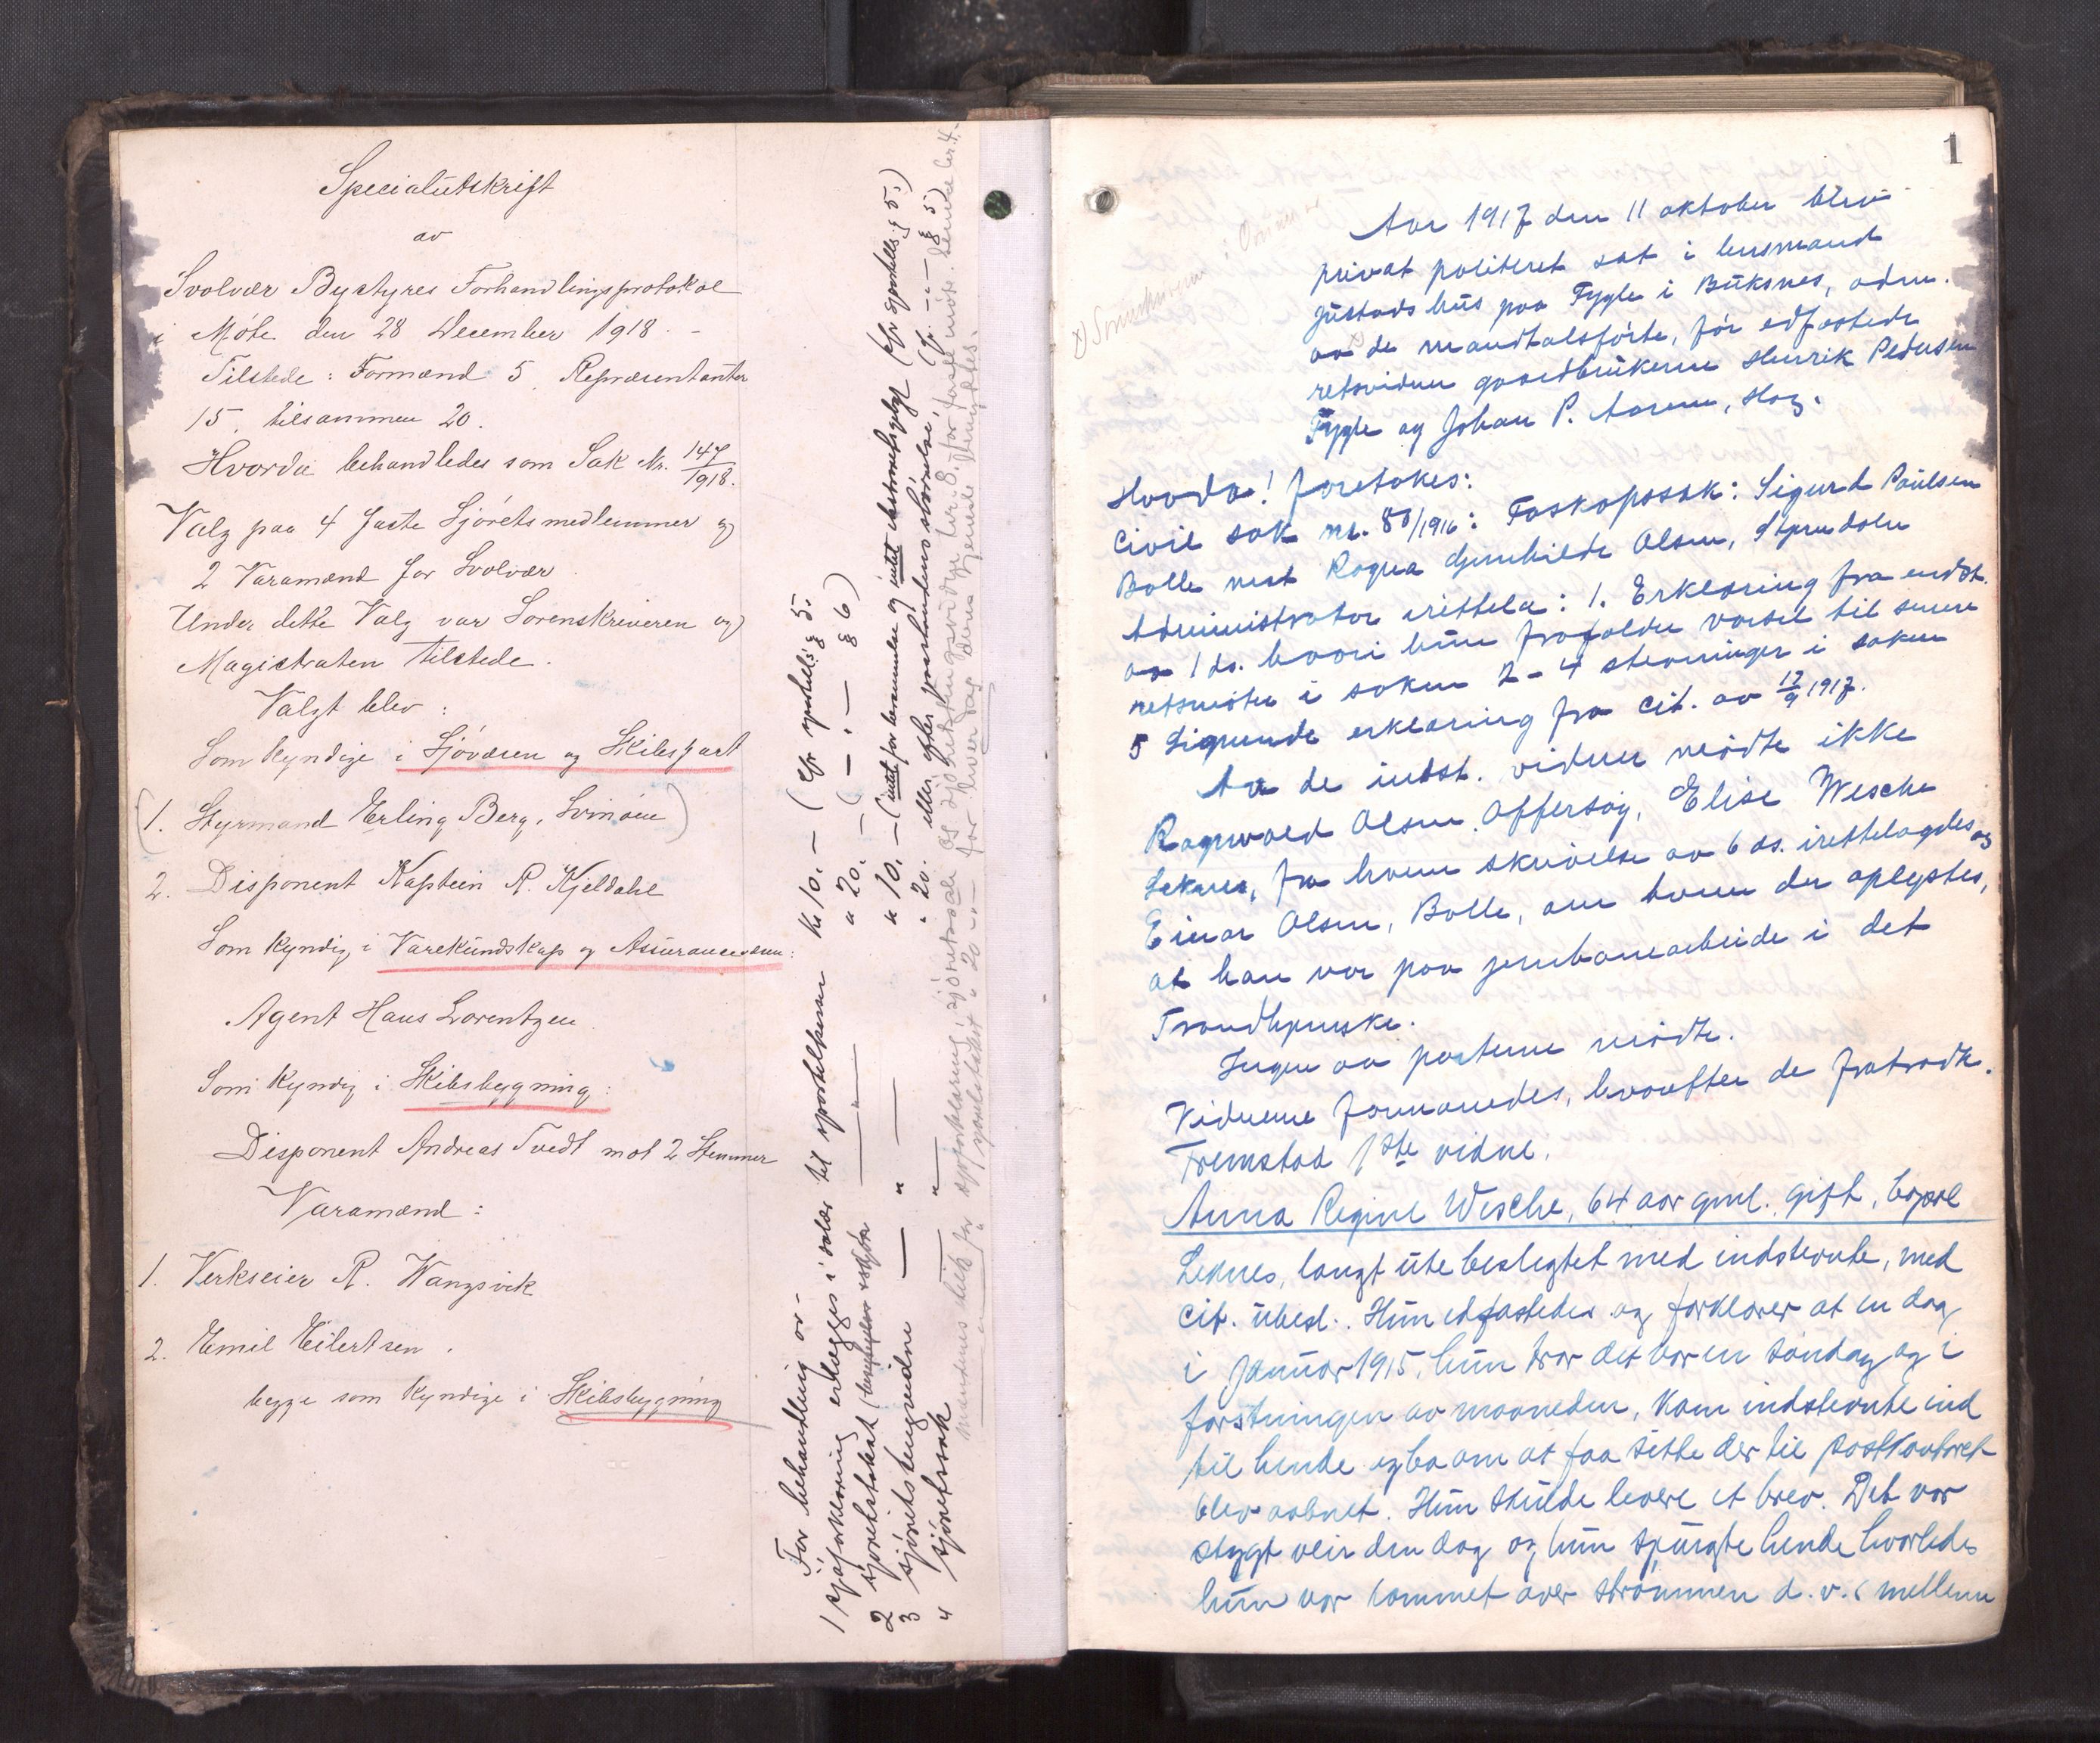 Specialutskrift
av
Svolvær Bystyres Forhandlingsprotokol
i Møte den 28 December 1918. -
Tilstede: Formænd 5, Repræsentanter
15, tilsammen 20.
Hvorda behandledes som Sak Nr. 147/1918.
Valg paa 4 faste Sjøretsmedlemmer og
2 Varamænd for Svolvær
Under dette Valg var Sorenskriveren og
Magistraten tilstede.
Valgt blev:
Som kyndige i Sjøvæsen og Skibsfart
(1. Styrmand Erling Berg, Svinøen)
2. Disponent Kaptein R. Kjeldahl
Som kyndig i Varekundskap og Assurancevæsen:
Agent Hans Lorentzen
Som kyndig i Skibsbygning:
Disponent Andreas Tvedt mot 2 Stemmer
Varamænd:
1. Verkseier R. Wangsvik
2. Emil Eilertsen.
begge som kyndige i Skibsbygning
For behandling av -
1 sjøforklaring erlægges i salær til sportelkassen Kr 10. - (cfr sportells. § 5.
2 sjøretsskat " " 20. - ( - . - § 6)
3 sjørets tengsvidne " " 10. - (intet for berammelse og intet retsgebyr (cfr sportells. § 5.)
4 sjøretssak " " 20.
1
Aar 1917 den 11 oktober blev
privat politiret sat i lensmand
Justads hus paa Fygle i Buksnes, adm.
av de mandtalsførte, før edfæstede
retsvidner gaardbrukerne Henrik Pedersen
Fygle og Johan P. Aasen, Hag.
Hvorda! foretokes:
Civil sak nr. 88/1916: Farskapssak: Sigurd Paulsen
Bolle mot Ragna Gunhilde Olsen,
Administrator irettela: 1. Erklæring fra indst.
av 1 ds. hvori hun frafalder varsel til senere
retsmøter i saken 2-4 stevninger i saken
5 Lignende erklæring fra cit. av 17/9 1917.
Av de indst. vidner mødte ikke
Ragnvald Olsen Offersøy, Elise Wesche
Leknes, fra hvem skrivelse av 6 ds. irettelagdes og
Einar Olsen, Bolle, om hvem der oplystes,
at han var paa jernbanearbeide i det
Trondhjemske.
Ingen av parterne mødte.
Vidnerne formanedes, hvorefter de fratraadte.
Fremstod 1ste vidne.
Anna Regine Wesche, 64 aar gml. gift,
Leknes, langt ute beslegtet med indstevnte, med
cit. ubesl. Hun edfæstedes og forklarer at en dag
i januar 1915, hun tror det var en søndag og i
forstningen av maaneden, kom indstevnte ind
til hende og ba om at faa sitte der til postkontoret
blev aabnet. Hun skulde levere et brev. Det var
stygt veir den dag og hun spurgte hende hvorledes
hun var kommet over strømmen d.v.s mellem